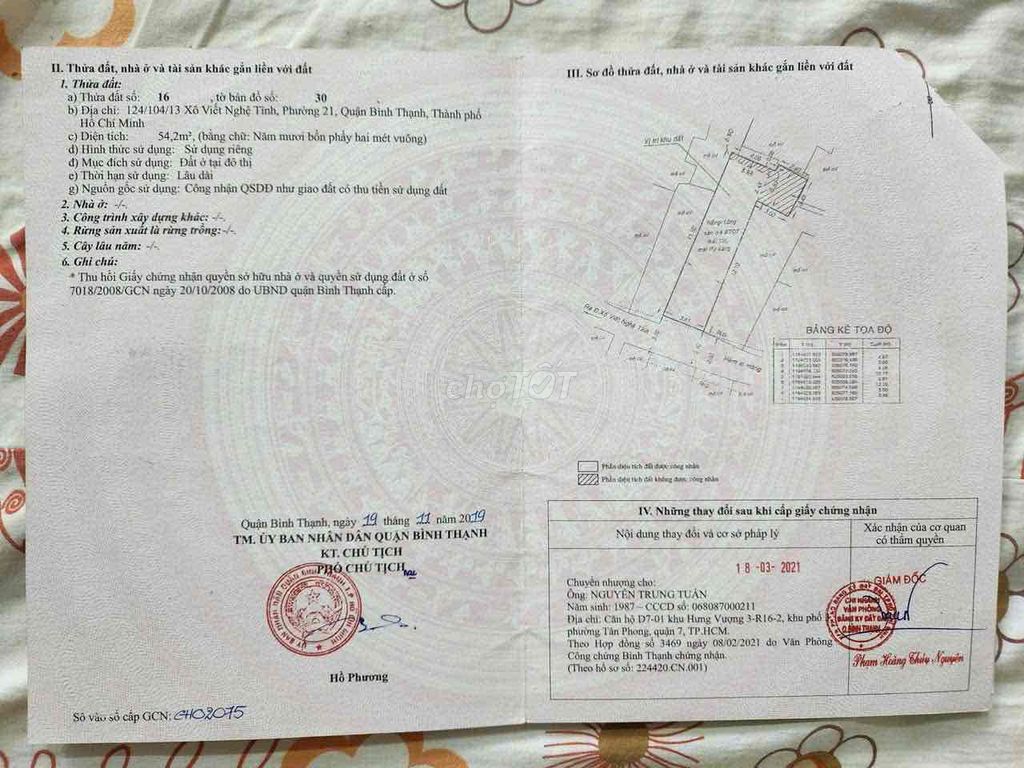 II. Thửa đất, nhà ở và tài sản khác gắn liền với đất
1. Thửa đất:
a) Thửa đất số: 16 , tờ bản đồ số: 30
b) Địa chỉ: 124/104/13 Xô Viết Nghệ Tĩnh, Phường 21, Quận Bình Thạnh, Thành phố
Hồ Chí Minh
c) Diện tích: 54,2m², (bằng chữ: Năm mươi bốn phẩy hai mét vuông)
d) Hình thức sử dụng: Sử dụng riêng
đ) Mục đích sử dụng: Đất ở tại đô thị
e) Thời hạn sử dụng: Lâu dài
g) Nguồn gốc sử dụng: Công nhận QSDĐ như giao đất có thu tiền sử dụng đất
2. Nhà ở: -/-.
3. Công trình xây dựng khác: -/-.
4. Rừng sản xuất là rừng trồng:-/-.
5. Cây lâu năm: -/-.
6. Ghi chú:
* Thu hồi Giấy chứng nhận quyền sở hữu nhà ở và quyền sử dụng đất ở số
7018/2008/GCN ngày 20/10/2008 do UBND quận Bình Thạnh cấp.
Quận Bình Thạnh, ngày 19 tháng 11 năm 2019
TM. ỦY BAN NHÂN DÂN QUẬN BÌNH THẠNH
KT. CHỦ TỊCH
PHÓ CHỦ TỊCH
Hồ Phương
Số vào sổ cấp GCN: CH02075
III. Sơ đồ thửa đất, nhà ở và tài sản khác gắn liền với đất
Vị trí khu đất
BẢNG KÊ TỌA ĐỘ
choTỐT
Phần diện tích đất được công nhận
Phần diện tích đất không được công nhận
IV. Những thay đổi sau khi cấp giấy chứng nhận
Nội dung thay đổi và cơ sở pháp lý
Xác nhận của cơ quan
có thẩm quyền
18-03-2021
Chuyển nhượng cho:
Ông: NGUYỄN TRUNG TUẤN
Năm sinh: 1987 – CCCD số: 068087000211
Địa chỉ: Căn hộ D7-01 khu Hưng Vượng 3-R16-2, khu phố
phường Tân Phong, quận 7, TP.HCM.
Theo Hợp đồng số 3469 ngày 08/02/2021 do Văn Phòng
Công chứng Bình Thạnh chứng nhận.
(Theo hồ sơ số: 224420.CN.001)
GIÁM ĐỐC
CHI NHÁNH
VĂN PHÒNG
ĐĂNG KÝ ĐẤT ĐAI
Q.BÌNH THẠNH
Phạm Hoàng Thúy Nguyên